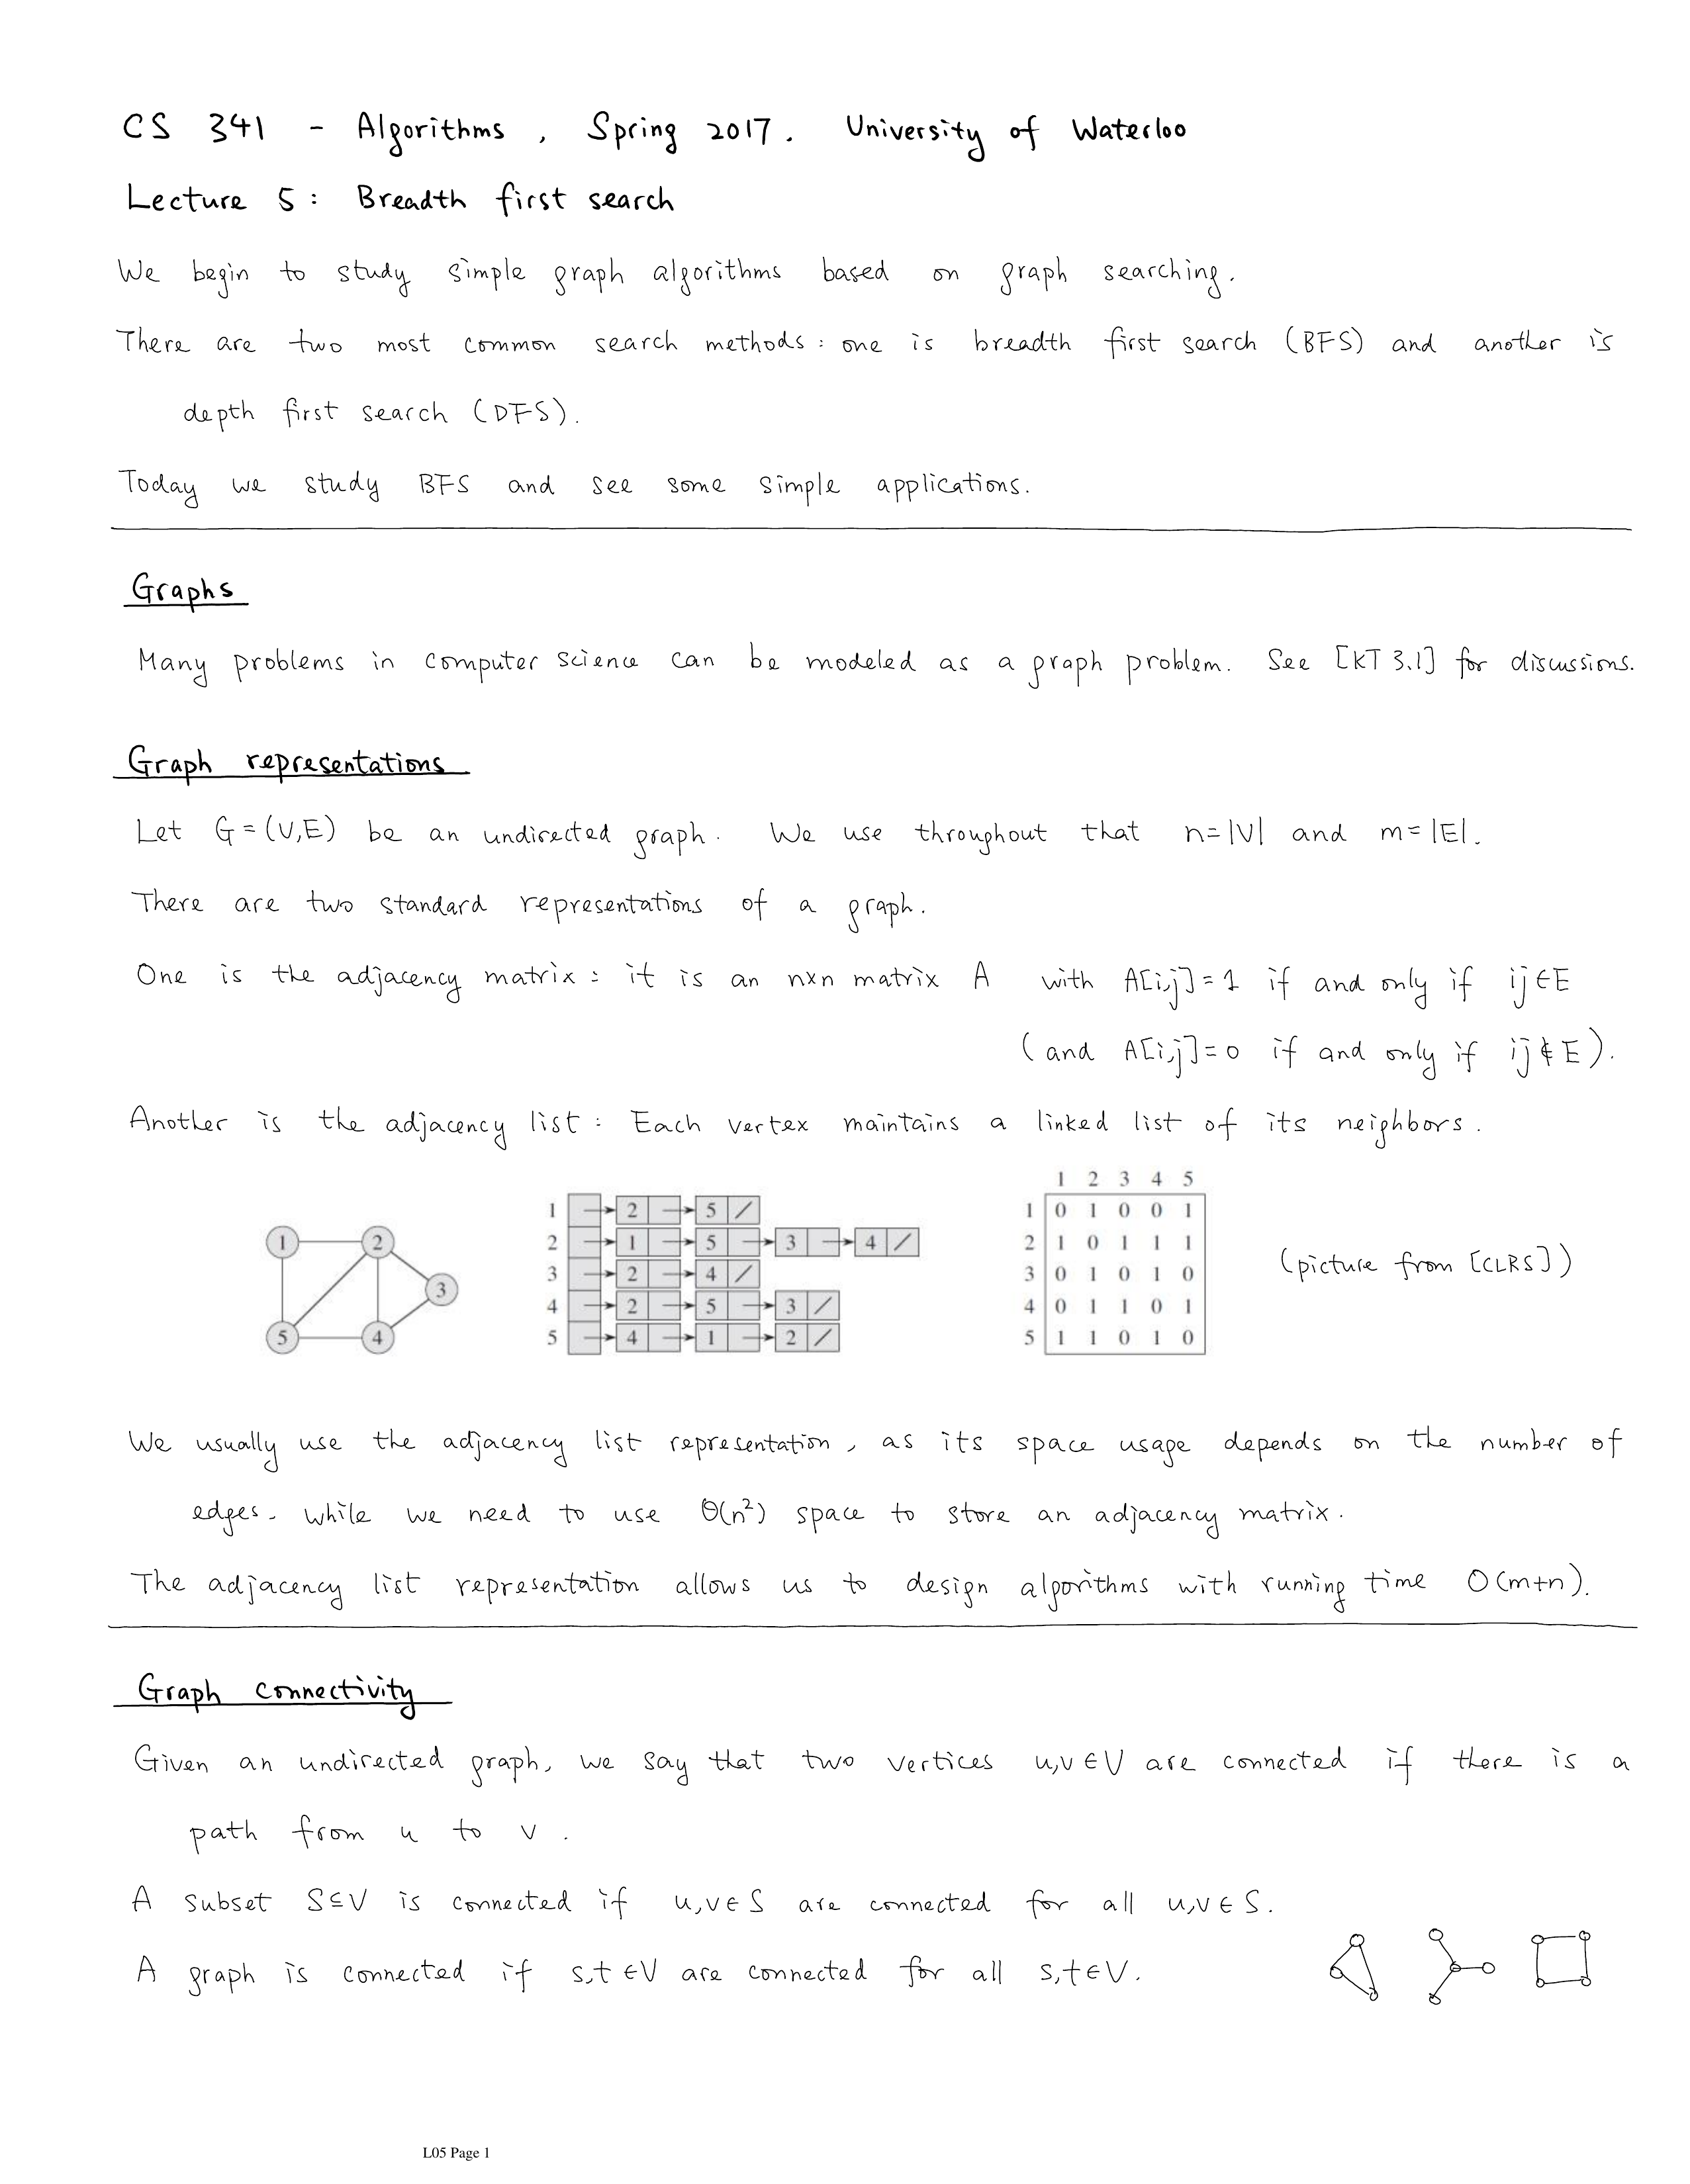 CS 341 - Algorithms, Spring 2017. University of Waterloo
Lecture 5: Breadth first search
We begin to study simple graph algorithms based on graph searching.
There are two most common search methods: one is breadth first search (BFS) and another is
depth first search (DFS).
Today we study BFS and see some simple applications.
Graphs
Many problems in computer science can be modeled as a graph problem. See [KT 3.1] for discussions.
Graph representations
Let G=(V,E) be an undirected graph. We use throughout that n=|V| and m=|E|.
There are two standard representations of a graph.
One is the adjacency matrix: it is an n×n matrix A with A[i,j]=1 if and only if ij∈E
(and A[i,j]=0 if and only if ij∉E).
Another is the adjacency list: Each vertex maintains a linked list of its neighbors.
1 2 3 4 5
1 2 5 /
2 1 5 3 4 /
3 2 4 /
4 2 5 3 /
5 4 1 2 /
1 2 3 4 5
1 0 1 0 0 1
2 1 0 1 1 1
3 0 1 0 1 0
4 0 1 1 0 1
5 1 1 0 1 0
(picture from [CLRS])
We usually use the adjacency list representation, as its space usage depends on the number of
edges, while we need to use Θ(n²) space to store an adjacency matrix.
The adjacency list representation allows us to design algorithms with running time O(m+n).
Graph connectivity
Given an undirected graph, we say that two vertices u,v∈V are connected if there is a
path from u to v.
A subset S⊆V is connected if u,v∈S are connected for all u,v∈S.
A graph is connected if s,t∈V are connected for all s,t∈V.
L05 Page 1